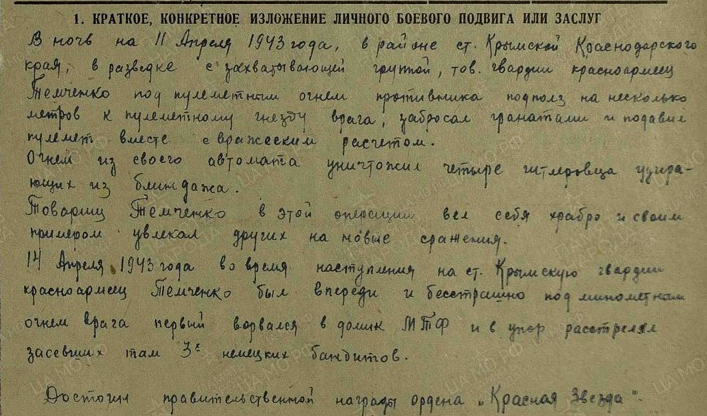 1. КРАТКОЕ, КОНКРЕТНОЕ ИЗЛОЖЕНИЕ ЛИЧНОГО БОЕВОГО ПОДВИГА ИЛИ ЗАСЛУГ
В ночь на 11 Апреля 1943 года, в районе ст. Крымской Краснодарского
края, в разведке с захватывающей группой, тов. гвардии красноармеец
Темченко под пулеметным огнем противника подполз на несколько
метров к пулеметному гнезду врага, забросал гранатами и подавил
пулемет вместе с вражеским расчетом.
Огнем из своего автомата уничтожил четыре гитлеровца удира-
ющих из блиндажа.
Товарищ Темченко в этой операции вел себя храбро и своим
примером увлекал других на новые сражения.
14 Апреля 1943 года во время наступления на ст. Крымскую гвардии
красноармеец Темченко был впереди и бесстрашно под минометным
огнем врага первый ворвался в домик МТФ и в упор расстрелял
засевших там 3х немецких бандитов.
Достоин правительственной награды ордена „Красная Звезда".